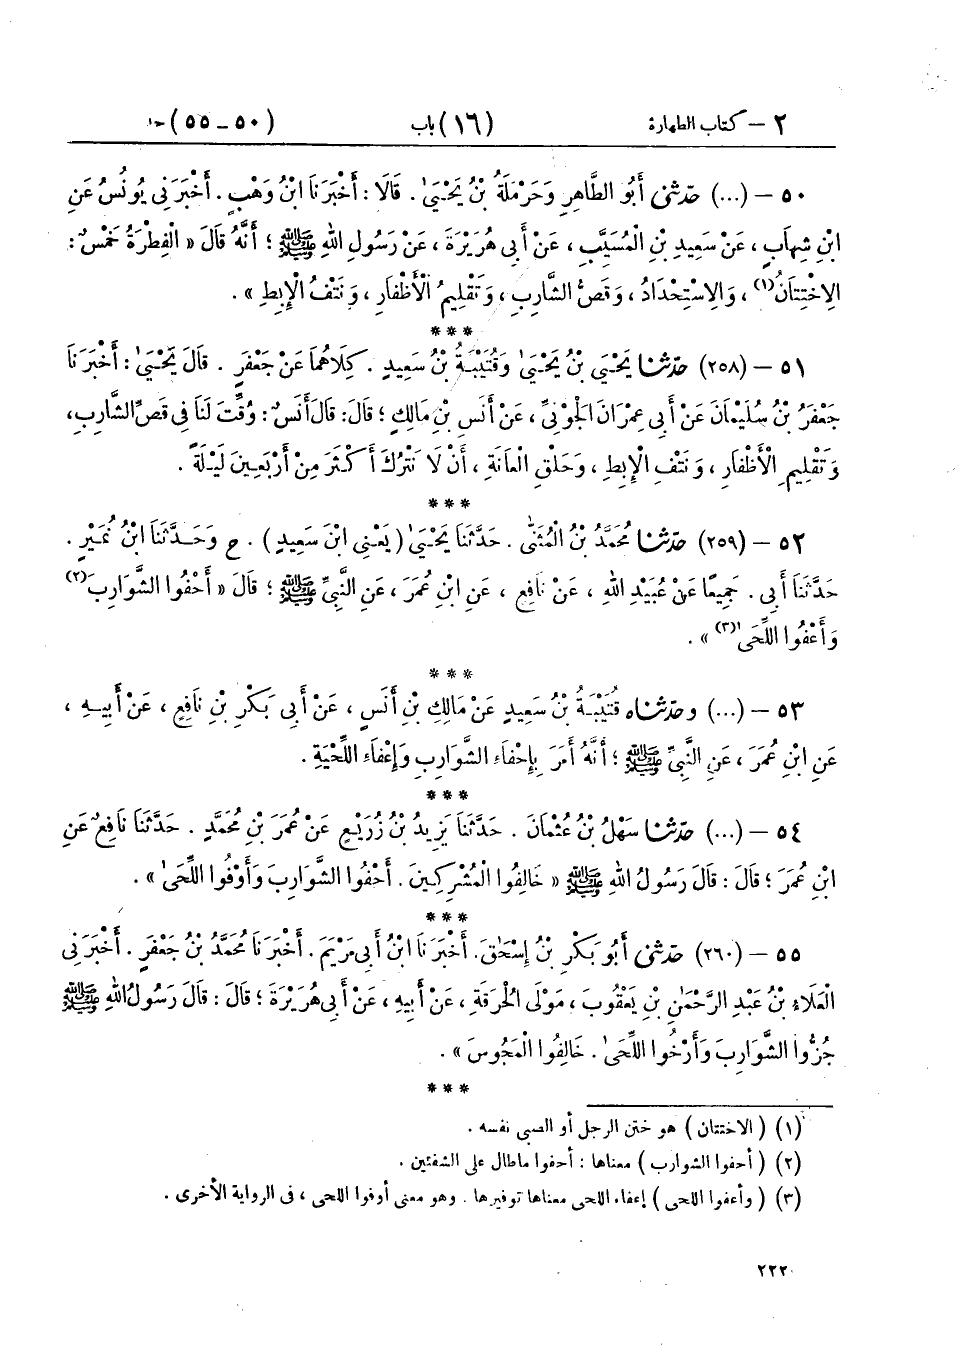 ٢ – كتاب الطهارة (١٦) باب (٥٠ – ٥٥) ح
٥٠ – (...) حدّثنى أَبُو الطَّاهِرِ وَحَرْمَلَةُ بْنُ يَحْيَىٰ . قَالَا : أَخْبَرَنَا ابْنُ وَهْبٍ . أَخْبَرَنِي يُونُسُ عَنِ
ابْنِ شِهاَبٍ ، عَنْ سَعِيدِ بْنِ الْمُسَيَّبِ ، عَنْ أَبِي هُرَيْرَةَ ، عَنْ رَسُولِ اللهِ ﷺ ؛ أَنَّهُ قَالَ « الْفِطْرَةُ خَمْسٌ :
الِاخْتِتَانُ(١) ، وَالِاسْتِحْدَادُ ، وَقَصُّ الشَّارِبِ ، وَتَقْلِيمُ الْأَظْفاَرِ ، وَنَتْفُ الْإِبِطِ » .
***
٥١ – (٢٥٨) حدّثنا يَحْيَى بْنُ يَحْيَىٰ وَقُتَيْبَةُ بْنُ سَعِيدٍ . كِلَاهُمَا عَنْ جَعْفَرٍ . قَالَ يَحْيَىٰ : أَخْبَرَنَا
جَعْفَرُ بْنُ سُلَيْمَانَ عَنْ أَبِي عِمْرَانَ الْجَوْنِيِّ ، عَنْ أَنَسِ بْنِ مَالِكٍ ؛ قَالَ : قَالَ أَنَسٌ : وُقِّتَ لَنَا فِي قَصِّ الشَّارِبِ ،
وَتَقْلِيمِ الْأَظْفَارِ ، وَنَتْفِ الْإِبِطِ ، وَحَلْقِ الْعَانَةِ ، أَنْ لَا نَتْرُكَ أَكْثَرَ مِنْ أَرْبَعِينَ لَيْلَةً .
***
٥٢ – (٢٥٩) حدّثنا مُحَمَّدُ بْنُ الْمُثَنَّى . حَدَّثَنَا يَحْيَىٰ ( يَعْنِي ابْنَ سَعِيدٍ ) . ح وَحَدَّثَنَا ابْنُ نُمَيْرٍ .
حَدَّثَنَا أَبِي . جَمِيعًا عَنْ عُبَيْدِ اللهِ ، عَنْ نَافِعٍ ، عَنِ ابْنِ عُمَرَ ، عَنِ النَّبِيِّ ﷺ ؛ قَالَ « أَحْفُوا الشَّوَارِبَ(٢)
وَأَعْفُوا اللِّحَىٰ(٣) » .
***
٥٣ – (...) وحدّثناه قُتَيْبَةُ بْنُ سَعِيدٍ عَنْ مَالِكِ بْنِ أَنَسٍ ، عَنْ أَبِي بَكْرِ بْنِ نَافِعٍ ، عَنْ أَبِيهِ ،
عَنِ ابْنِ عُمَرَ ، عَنِ النَّبِيِّ ﷺ ؛ أَنَّهُ أَمَرَ بِإِحْفَاءِ الشَّوَارِبِ وَإِعْفَاءِ اللِّحْيَةِ .
***
٥٤ – (...) حدّثنا سَهْلُ بْنُ عُثْمَانَ . حَدَّثَنَا يَزِيدُ بْنُ زُرَيْعٍ عَنْ عُمَرَ بْنِ مُحَمَّدٍ . حَدَّثَنَا نَافِعٌ عَنِ
ابْنِ عُمَرَ ؛ قَالَ : قَالَ رَسُولُ اللهِ ﷺ « خَالِفُوا الْمُشْرِكِينَ . أَحْفُوا الشَّوَارِبَ وَأَوْفُوا اللِّحَىٰ » .
***
٥٥ – (٢٦٠) حدّثنى أَبُو بَكْرِ بْنُ إِسْحَاقَ . أَخْبَرَنَا ابْنُ أَبِي مَرْيَمَ . أَخْبَرَنَا مُحَمَّدُ بْنُ جَعْفَرٍ . أَخْبَرَنِي
الْعَلَاءُ بْنُ عَبْدِ الرَّحْمَٰنِ بْنِ يَعْقُوبَ ، مَوْلَى الْحُرَقَةِ ، عَنْ أَبِيهِ ، عَنْ أَبِي هُرَيْرَةَ ؛ قَالَ : قَالَ رَسُولُ اللهِ ﷺ
جُزُّوا الشَّوَارِبَ وَأَرْخُوا اللِّحَىٰ . خَالِفُوا الْمَجُوسَ » .
***
(١) ( الاختتان ) هو ختن الرجل أو الصبى نفسه .
(٢) ( أحفوا الشوارب ) معناها : أحفوا ماطال على الشفتين .
(٣) ( وأعفوا اللحى ) إعفاء اللحى معناها توفيرها . وهو معنى أوفوا اللحى ، فى الرواية الأخرى .
٢٢٢